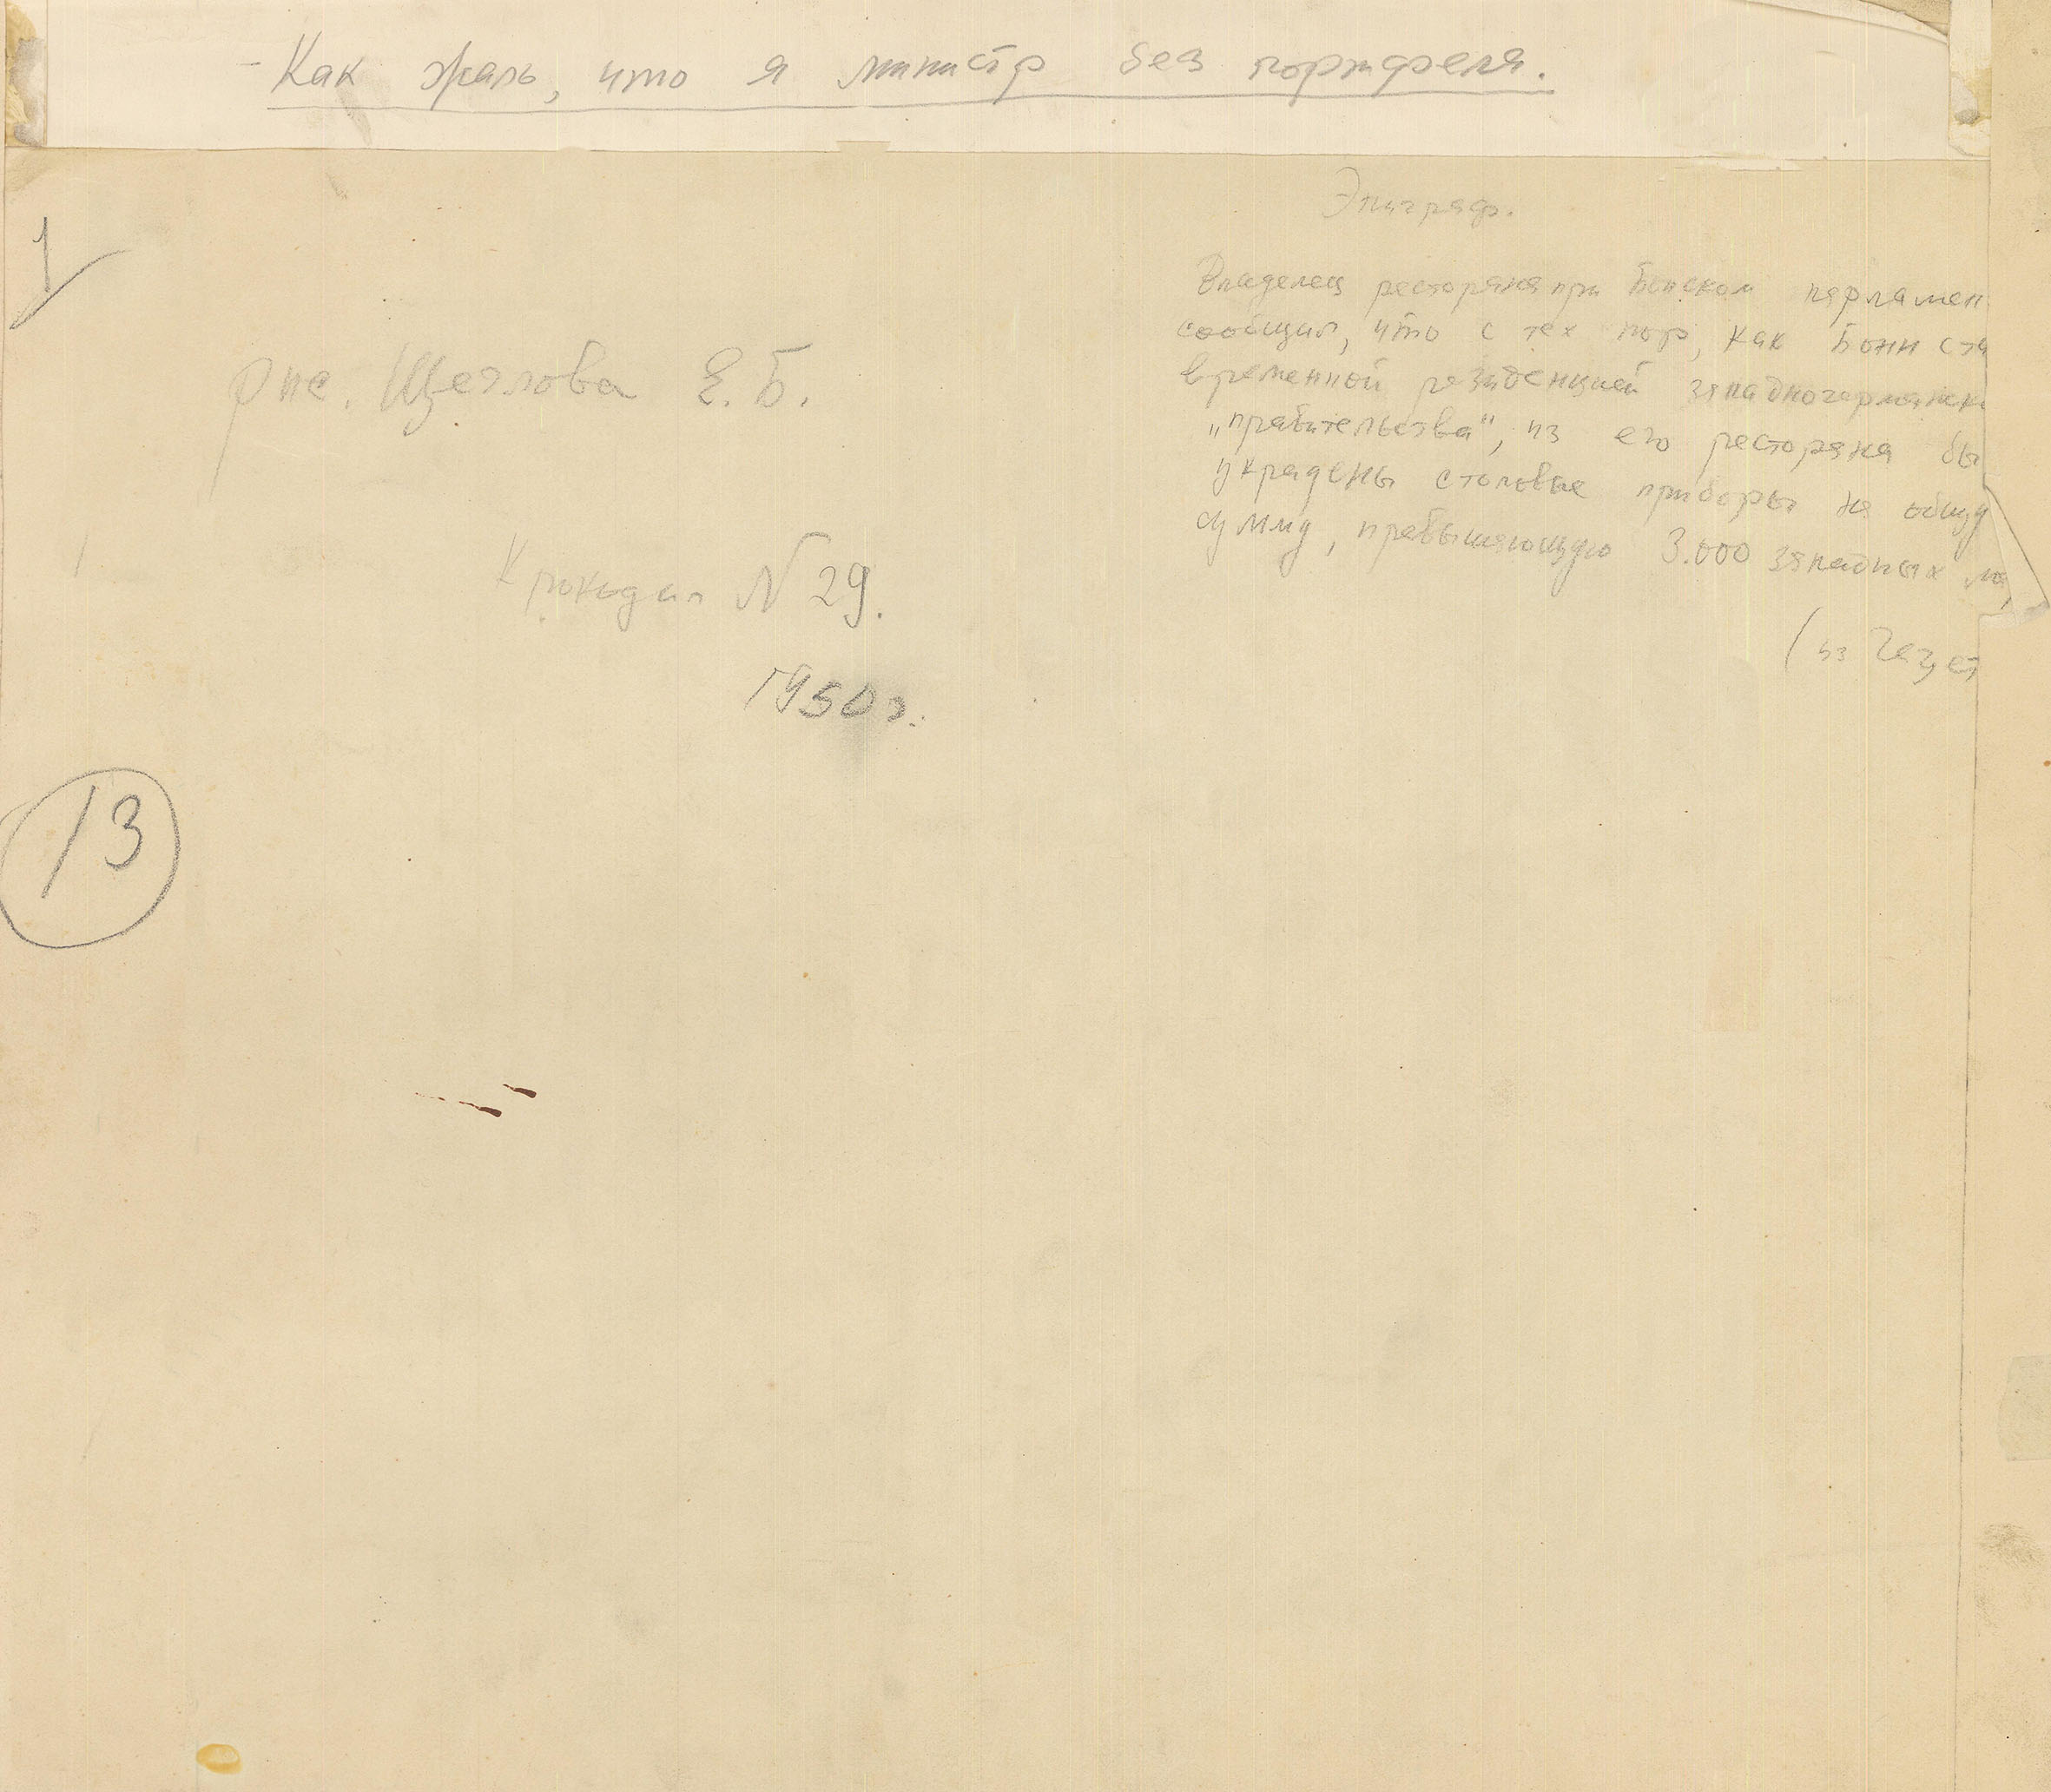 - Как жаль, что я министр без портфеля.
Эпиграф.
Владелец ресторана при Бонском парламен
сообщил, что с тех пор, как Бонн ста
временной резиденцией западногерманск
„правительства", из его ресторана бы
украдены столовые приборы на общу
сумму, превышающую 3.000 западных ма
(из газет
рис. Щеглова Е.Б.
Крокодил N 29.
1950 г.
13